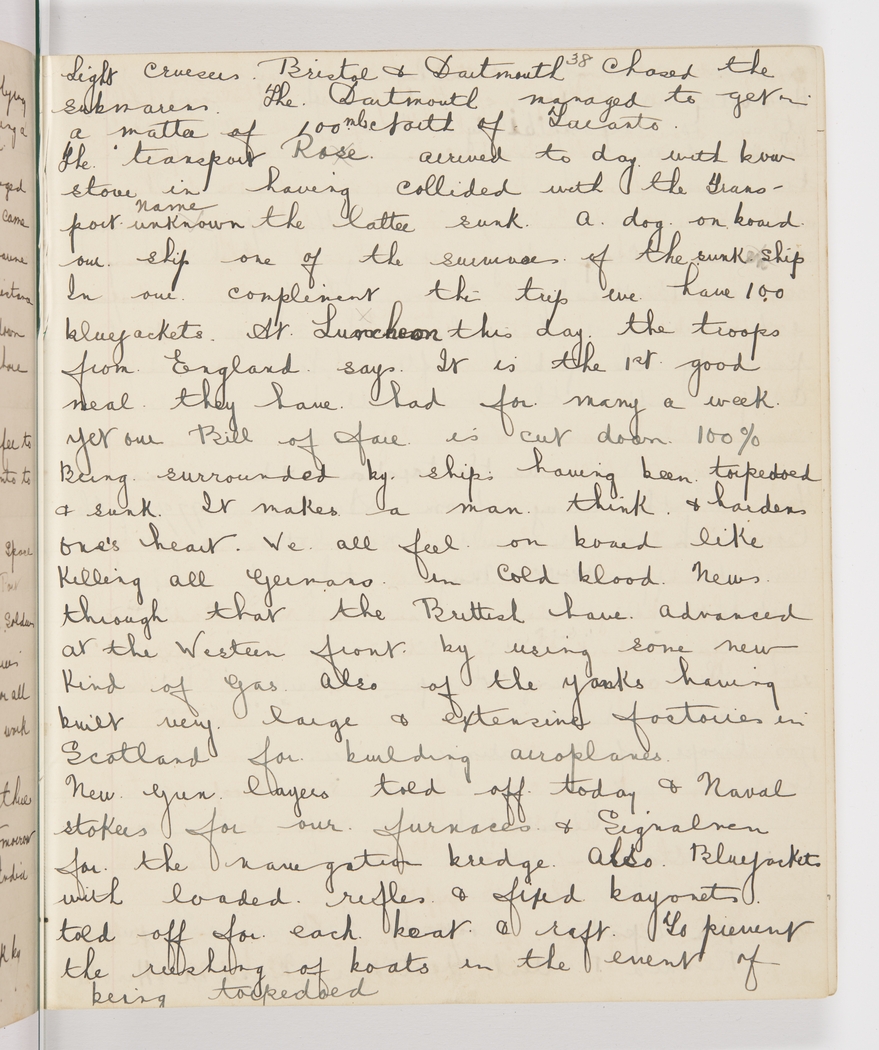 38
light cruesers. Bristol & Dartmouth chased the
submarens. The. Dartmouth managed to get in
a matter of 100 mls North of. Taranto.
The. transport Rose. arrived to day with bow
stove in having collided with the Trans-
port. name unknown the latter sunk. A. dog. on. board.
our. ship one of the survivors. of the sunk. ship
In our. compliment this trip we have 100
bluejackets. At. Luncheon this day. the troops
from. England. says. It is the 1st. good
meal. they have. had for. many a week.
yet our Bill of fare. is cut down. 100%
Being. surrounded by. ships having been. torpedoed
& sunk. It makes. a man. think. & hardens
one's heart. We. all feel. on board like
Killing all Germans. in Cold blood. News.
through that the Brittish have. advanced
at the Western front. by using some new
Kind of Gas. Also of the yanks having
built very. large & extensive factories in
Scotland for. building airoplanes.
New. gun. layers told off. today & Naval
stokers for our. furnaces. & Signalmen
for. the navegation bredge. Also. Bluejackets
with loaded. rifles. & fixed bayonets.
told off for. each. boat. & raft. To prevent
the rushing of boats in the event of
being torpedoed